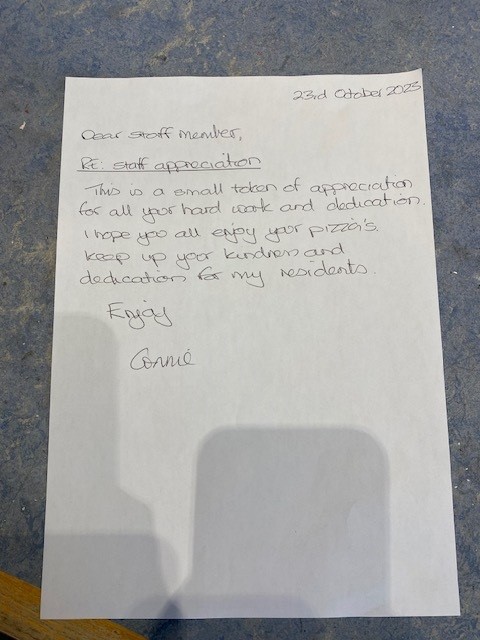 23rd October 2023
Dear staff member,
RE: staff appreciation
This is a small token of appreciation
for all your hard work and dedication.
I hope you all enjoy your pizza's.
keep up your kindness and
dedication for my residents.
Enjoy
Connie